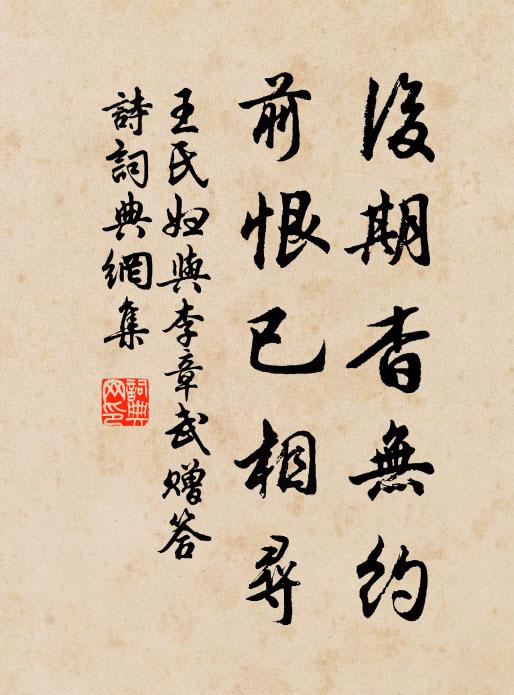 後期杳無約
前恨已相尋
王氏婦與李章武贈答
詩詞典網集
詞典網印